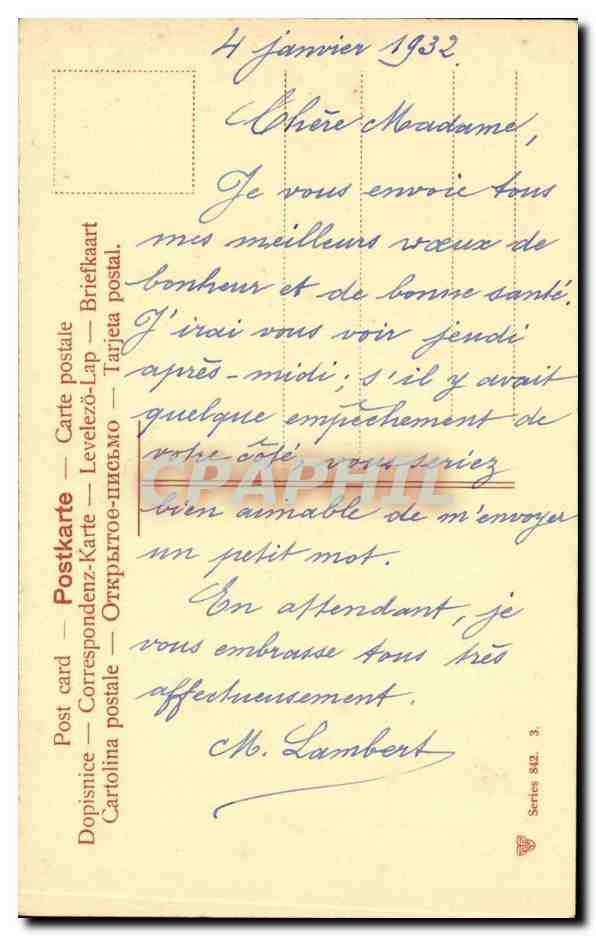 4 janvier 1932.
Chère Madame,
Je vous envoie tous
mes meilleurs vœux de
bonheur et de bonne santé.
J'irai vous voir jeudi
après-midi; s'il y avait
quelque empêchement de
votre côté, vous seriez
bien aimable de m'envoyer
un petit mot.
En attendant, je
vous embrasse tous très
affectueusement.
M. Lambert
Post card — Postkarte — Carte postale
Dopisnice — Correspondenz-Karte — Levelezö-Lap — Briefkaart
Cartolina postale — Открытое-письмо — Tarjeta postal.
CPAPHIL
Series 842. 3.